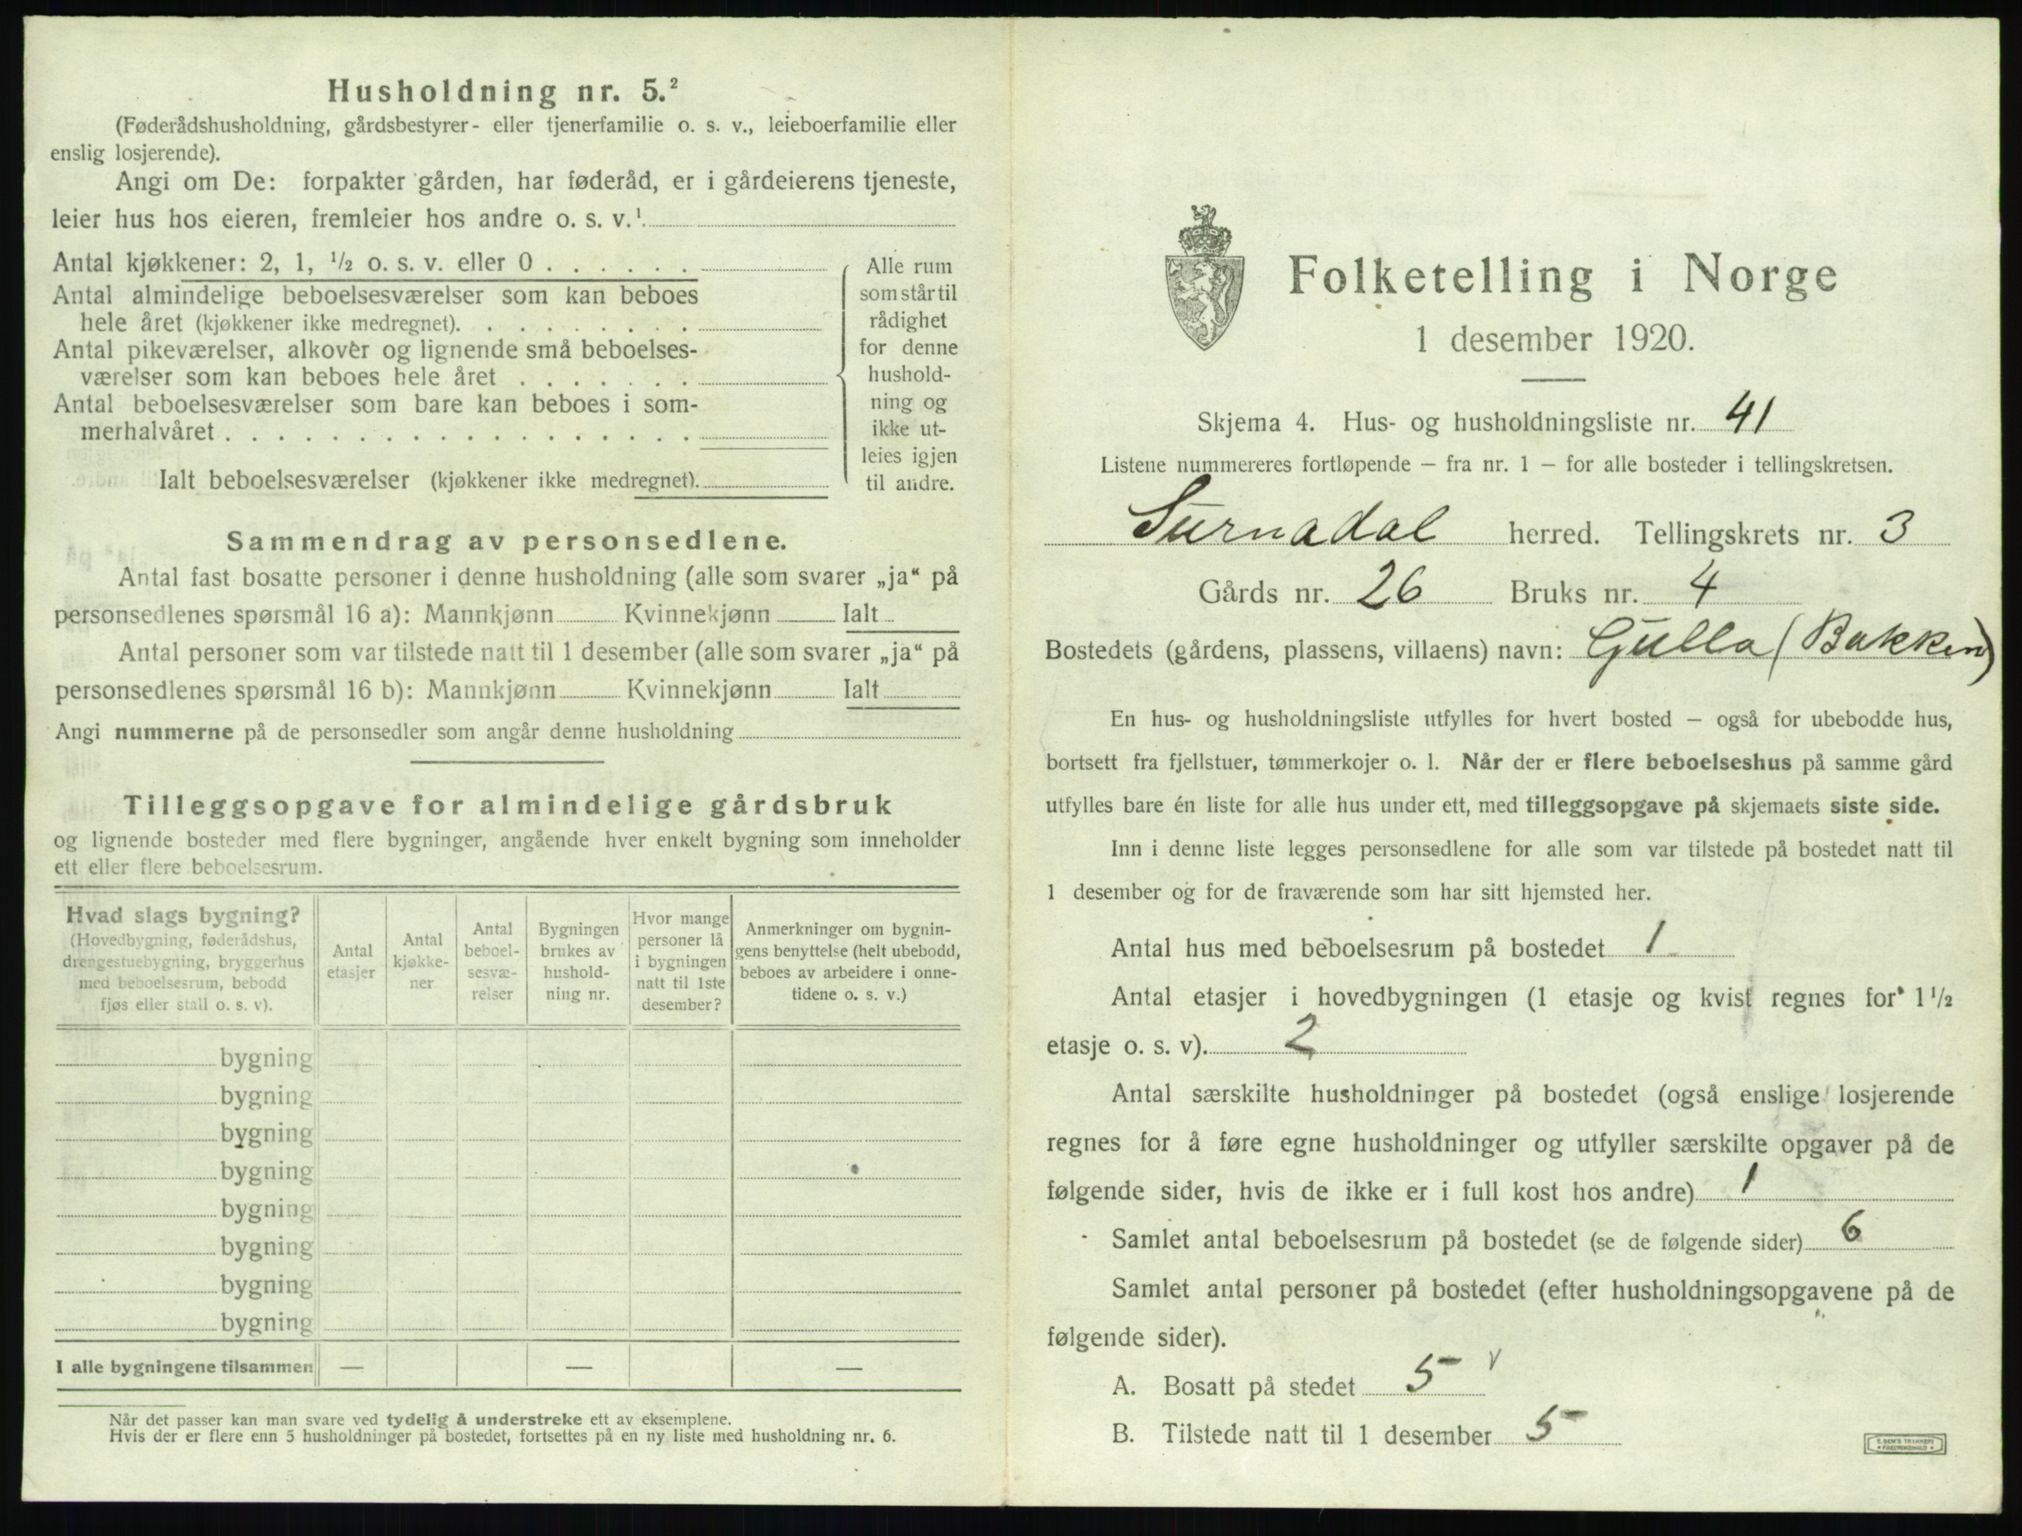 Husholdning nr. 5.²
(Føderådshusholdning, gårdsbestyrer- eller tjenerfamilie o. s. v., leieboerfamilie eller
enslig losjerende).
Angi om De: forpakter gården, har føderåd, er i gårdeierens tjeneste,
leier hus hos eieren, fremleier hos andre o. s. v.¹
Antal kjøkkener: 2, 1, ½ o. s. v. eller 0 . . . . . .
Antal almindelige beboelsesværelser som kan beboes
hele året (kjøkkener ikke medregnet). . . . . . . . . .
Antal pikeværelser, alkover og lignende små beboelses-
værelser som kan beboes hele året . . . . . . .
Antal beboelsesværelser som bare kan beboes i som-
merhalvåret . . . . . . . . . . . . . . . . . .
Ialt beboelsesværelser (kjøkkener ikke medregnet).
Alle rum
som står til
rådighet
for denne
hushold-
ning og
ikke ut-
leies igjen
til andre.
Sammendrag av personsedlene.
Antal fast bosatte personer i denne husholdning (alle som svarer „ja“ på
personsedlenes spørsmål 16 a): Mannkjønn Kvinnekjønn Ialt
Antal personer som var tilstede natt til 1 desember (alle som svarer „ja“ på
personsedlenes spørsmål 16 b): Mannkjønn Kvinnekjønn Ialt
Angi nummerne på de personsedler som angår denne husholdning
Tilleggsopgave for almindelige gårdsbruk
og lignende bosteder med flere bygninger, angående hver enkelt bygning som inneholder
ett eller flere beboelsesrum.
Hvad slags bygning?
(Hovedbygning, føderådshus,
drengestuebygning, bryggerhus
med beboelsesrum, bebodd
fjøs eller stall o. s. v).
Antal
etasjer
Antal
kjøkke-
ner
Antal
beboel-
sesvæ-
relser
Bygningen
brukes av
hushold-
ning nr.
Hvor mange
personer lå
i bygningen
natt til 1ste
desember?
Anmerkninger om bygnin-
gens benyttelse (helt ubebodd,
beboes av arbeidere i onne-
tidene o. s. v.)
bygning
bygning
bygning
bygning
bygning
bygning
bygning
bygning
I alle bygningene tilsammen — — —
Når det passer kan man svare ved tydelig å understreke ett av eksemplene.
Hvis der er flere enn 5 husholdninger på bostedet, fortsettes på en ny liste med husholdning nr. 6.
Folketelling i Norge
1 desember 1920.
Skjema 4. Hus- og husholdningsliste nr. 41
Listene nummereres fortløpende – fra nr. 1 – for alle bosteder i tellingskretsen.
Surnadal herred. Tellingskrets nr. 3
Gårds nr. 26 Bruks nr. 4
Bostedets (gårdens, plassens, villaens) navn: Gulla (Bakken)
En hus- og husholdningsliste utfylles for hvert bosted – også for ubebodde hus,
bortsett fra fjellstuer, tømmerkojer o. l. Når der er flere beboelseshus på samme gård
utfylles bare én liste for alle hus under ett, med tilleggsopgave på skjemaets siste side.
Inn i denne liste legges personsedlene for alle som var tilstede på bostedet natt til
1 desember og for de fraværende som har sitt hjemsted her.
Antal hus med beboelsesrum på bostedet 1
Antal etasjer i hovedbygningen (1 etasje og kvist regnes for 1 ½
etasje o. s. v). 2
Antal særskilte husholdninger på bostedet (også enslige losjerende
regnes for å føre egne husholdninger og utfyller særskilte opgaver på de
følgende sider, hvis de ikke er i full kost hos andre) 1
Samlet antal beboelsesrum på bostedet (se de følgende sider) 6
Samlet antal personer på bostedet (efter husholdningsopgavene på de
følgende sider).
A. Bosatt på stedet 5 v
B. Tilstede natt til 1 desember 5